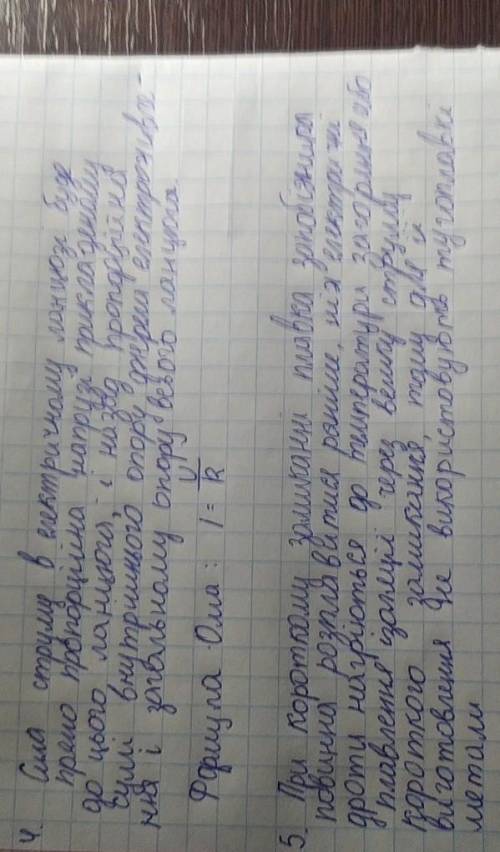 4. Сила струму в електричному ланцюзі буде
прямо пропорційна напрузі прикладеному
до цього ланцюга, і назад пропорційна
сумі внутрішнього опору джерела електрожив-
ня і загальному опору всього ланцюга
Формула Ома: I = U/R
5. При короткому замиканні плавка запобіжника
повинна розплавитися раніше, ніж електричні
дроти нагріються до температури загорання або
плавлення ізоляції через велику струму
короткого замикання, тому для її
виготовлення не використовують тугоплавкі
метали